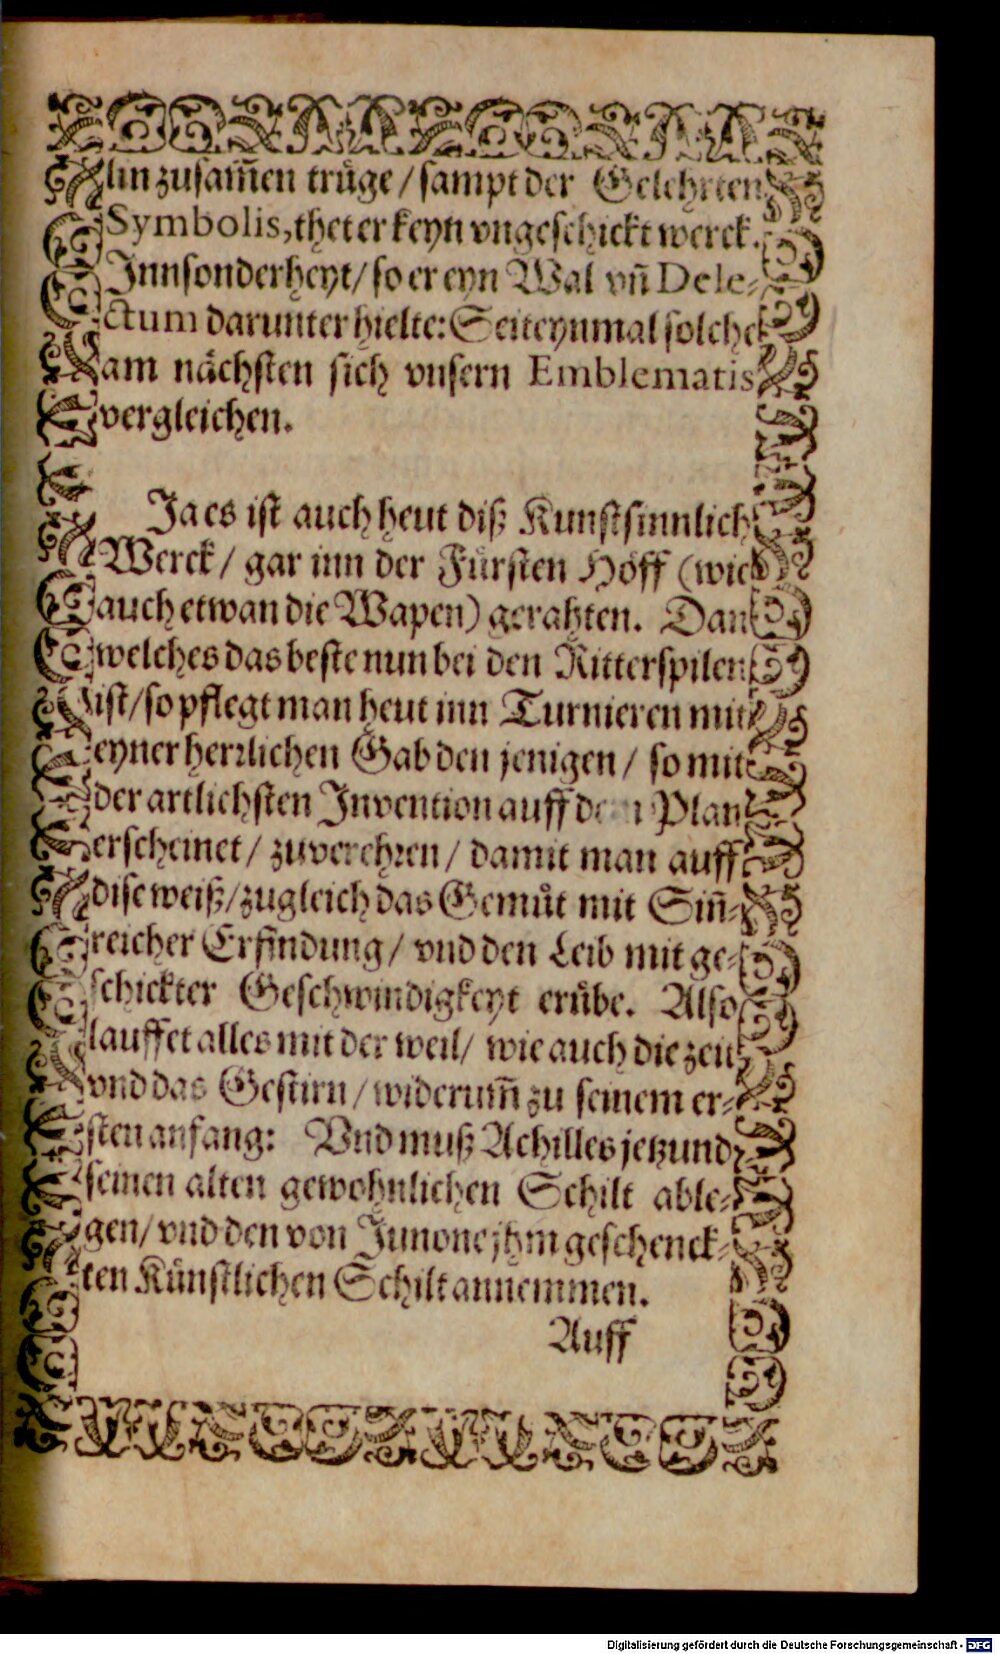 lin zusam̃en trüge / sampt der Gelehrten
Symbolis, thet er keyn vngeschickt werck.
Innsonderheyt / so er eyn Wal vñ Dele-
ctum darunter hielte: Seiteynmal solche
am nächsten sich vnsern Emblematis
vergleichen.
Ja es ist auch heut diß Kunstsinnlich
Werck / gar inn der Fürsten Höff (wie
auch etwan die Wapen) gerahten. Dan
welches das beste nun bei den Ritterspilen
ist / so pflegt man heut inn Turnieren mit
eyner herrlichen Gab den jenigen / so mit
der artlichsten Invention auff dem Plan
erscheinet / zuverehren / damit man auff
dise weiß / zugleich das Gemüt mit Siñ-
reicher Erfindung / vnd den Leib mit ge-
schickter Geschwindigkeyt erübe. Also
lauffet alles mit der weil / wie auch die zeit
vnd das Gestirn / widerum̃ zu seinem er-
sten anfang: Vnd muß Achilles jetzund
seinen alten gewohnlichen Schilt able-
gen / vnd den von Junone jhm geschenck-
ten Künstlichen Schilt annemmen.
Auff
Digitalisierung gefördert durch die Deutsche Forschungsgemeinschaft - DFG